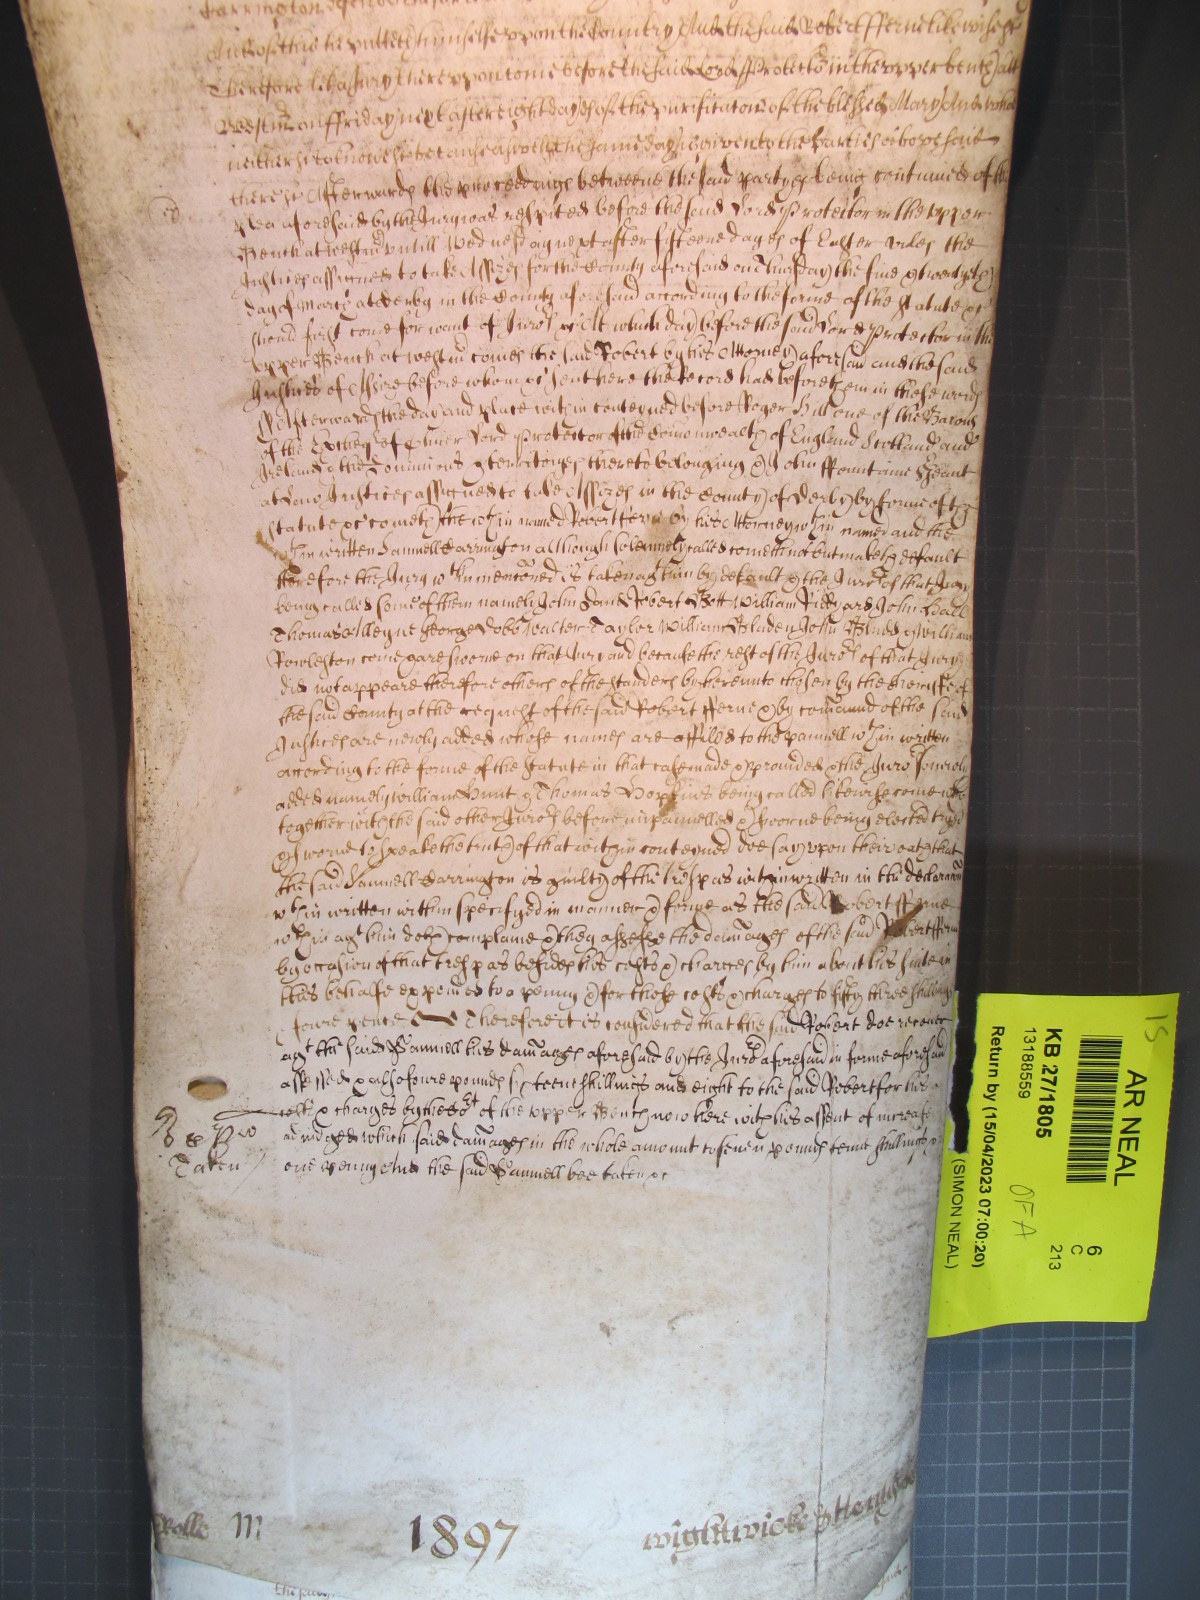 And of this he putteth himselfe uppon the Country And the said Robert fferne likewise &c
Therefore let a Jury thereuppon come before the said Lord Protector in the upper bench att
Westmr on ffriday next after eight dayes of the purificacon of the blessed Mary And who
neither &c to knowe &c because aswell &c the same day is given to the Parties aforesaid
there &c Afterwards the proceedings betweene the said partyes being continued of the
plea aforesaid by the Jury was respited before the said Lord Protector in the upper
Bench at westmr untill Wednesday next after fifteene dayes of Easter unles the
Justices assigned to take Assizes for the County aforesaid on Thursday the five & twentyeth
day of March at Derby in the County aforesaid according to the forme of the Statute &c
should first come for want of Jurors &c At which day before the said Lord Protector in the
upper Bench at westmr comes the said Robert by his Attorney aforesaid and the said
Justices of Assize before whom &c sent here the Record had before them in these words
Afterwards the day and place within conteyned before Roger Hill one of the Barons
of the Excheqr of Oliver Lord Protector of the Comonwealth of England Scotland and
Ireland & the Dominions & territoryes thereto belonging & John ffountaine Sjeant
at Law Justices assigned to take Assizes in the County of Derby by forme of the
statute &c cometh the wthin named Robert ferne by his Attorney wthin named and the
wthin written Samuell Carrington although solemnely called cometh not but maketh default
therefore the Jury wthin menconed is taken agt him by default & the Jurors of that Jury
being called some of them namely John Robert Bott William John Hall
Thomas Alleyne George Dobb Walter Taylor William Bladen John & William
Rowleston come & are sworne on that Jury and because the rest of the Jurors of that Jury
did not appeare therefore others of the standers by thereunto chosen by the Sheriffe of
the said County at the request of the said Robert fferne & by comaund of the said
Justices are newly added whose names are affiled to the pannell wthin written
according to the forme of the statute in that case made & provided & the Jurors soe newly
added namely William Hunt & Thomas Hopkins being called likewise come who
together with the said other Jurors before impannelled & sworne being elected tryed
& sworne to speake the truth of that within conteyned doe say upon their oath that
the said Samuell Carrington is guilty of the trespas within written in the declaracon
wthin written within specifyed in manner & forme as the said Robert fferne
wthin agt him doth complaine & they assesse the damages of the said Robert fferne
by occasion of that trespas besides his costs & charges by him about his suite in
this behalfe expended to a penny & for those costs & charges to fifty three shillings
foure pence Therefore it is considered that the said Robert doe recover
agt the said Samuell his damages aforesaid by the Jury aforesaid in forme aforesaid
assessed & also foure pounds sixteene shillings and eight to the said Robert for his
costs & charges by the Cort of the upper Bench now here with his assent of increase
adjudged which said damages in the whole amount to seven pounds tenne shillings &
one penny And the said Samuell bee taken &c
Taken
Rolle M
1897
Wightwicke &
AR NEAL
6
C
213
KB 27/1805
13188559
Return by (15/04/2023 07:00:20)
(SIMON NEAL)
OFA
15